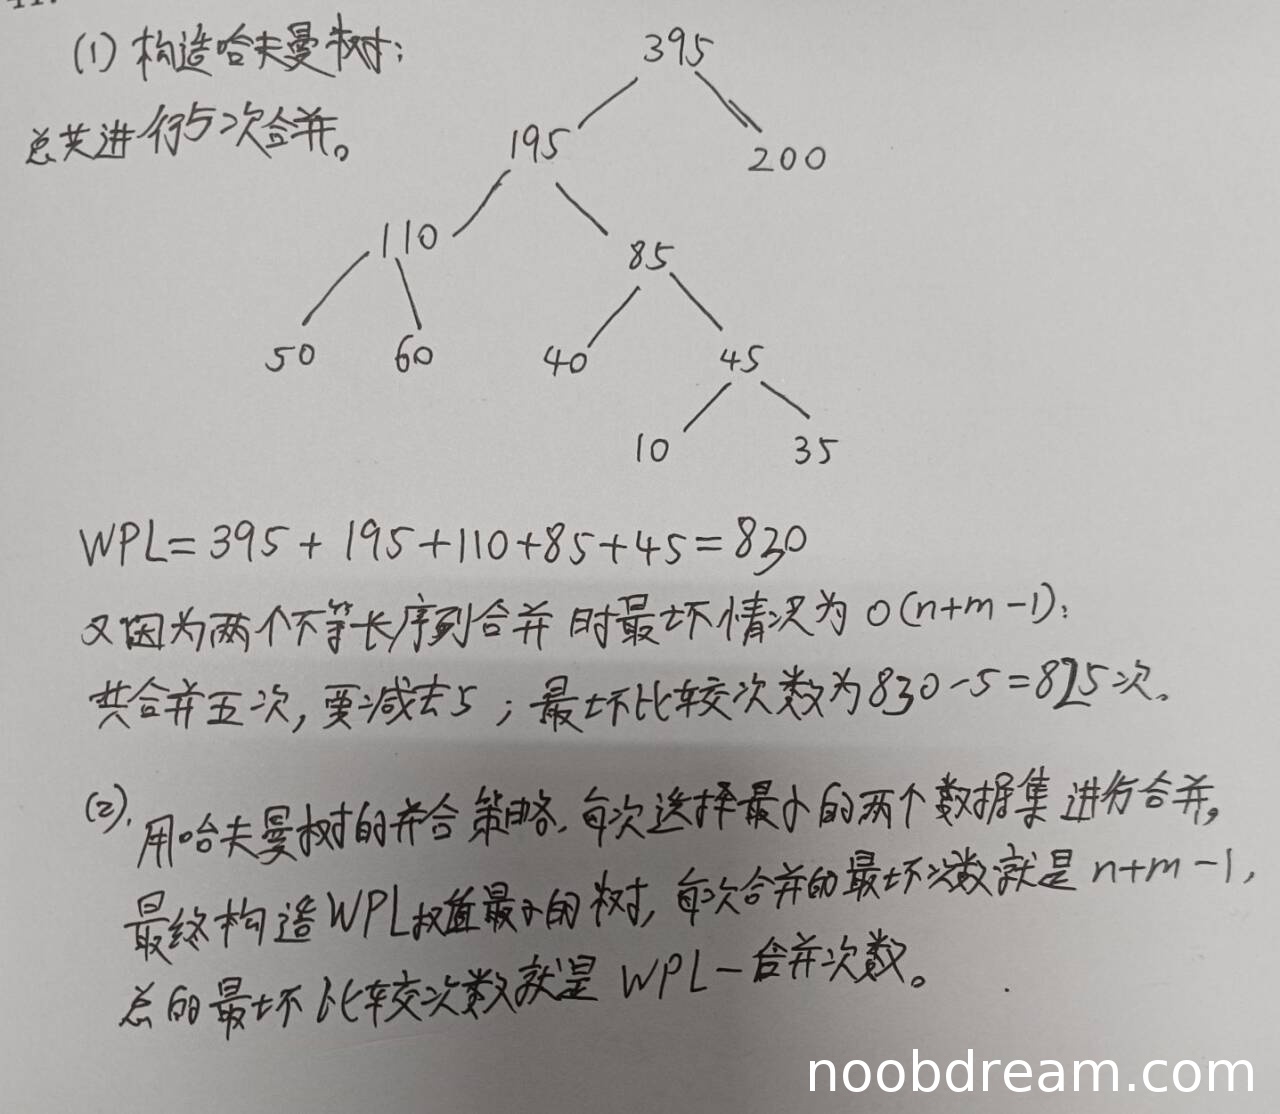 (1) 构造哈夫曼树;
总共进行5次合并。
395
195
200
110
85
50
60
40
45
10
35
WPL=395+195+110+85+45=830
又因为两个不等长序列合并时最坏情况为 O(n+m-1);
共合并五次,要减去5;最坏比较次数为830-5=825次。
(2). 用哈夫曼树的并合策略,每次选择最小的两个数据集进行合并,
最终构造WPL权值最小的树,每次合并的最坏次数就是n+m-1,
总的最坏比较次数就是WPL-合并次数。
noobdream.com